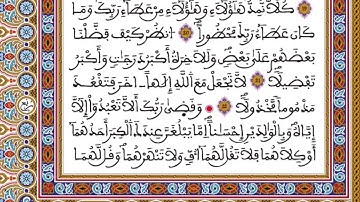 كُلًّا نُّمِدُّ هَٰٓؤُلَآءِ وَهَٰٓؤُلَآءِ مِنْ عَطَآءِ رَبِّكَ وَمَا
كَانَ عَطَآءُ رَبِّكَ مَحْظُورًا ۝ ٱنظُرْ كَيْفَ فَضَّلْنَا
بَعْضَهُمْ عَلَىٰ بَعْضٍ وَلَلْأٓخِرَةُ أَكْبَرُ دَرَجَٰتٍ وَأَكْبَرُ
تَفْضِيلًا ۝ لَّا تَجْعَلْ مَعَ ٱللَّهِ إِلَٰهًا ءَاخَرَ فَتَقْعُدَ
مَذْمُومًا مَّخْذُولًا ۝ وَقَضَىٰ رَبُّكَ أَلَّا تَعْبُدُوٓا۟ إِلَّآ
إِيَّاهُ وَبِٱلْوَٰلِدَيْنِ إِحْسَٰنًا إِمَّا يَبْلُغَنَّ عِندَكَ ٱلْكِبَرَ أَحَدُهُمَآ
أَوْ كِلَاهُمَا فَلَا تَقُل لَّهُمَآ أُفٍّ وَلَا تَنْهَرْهُمَا وَقُل لَّهُمَا